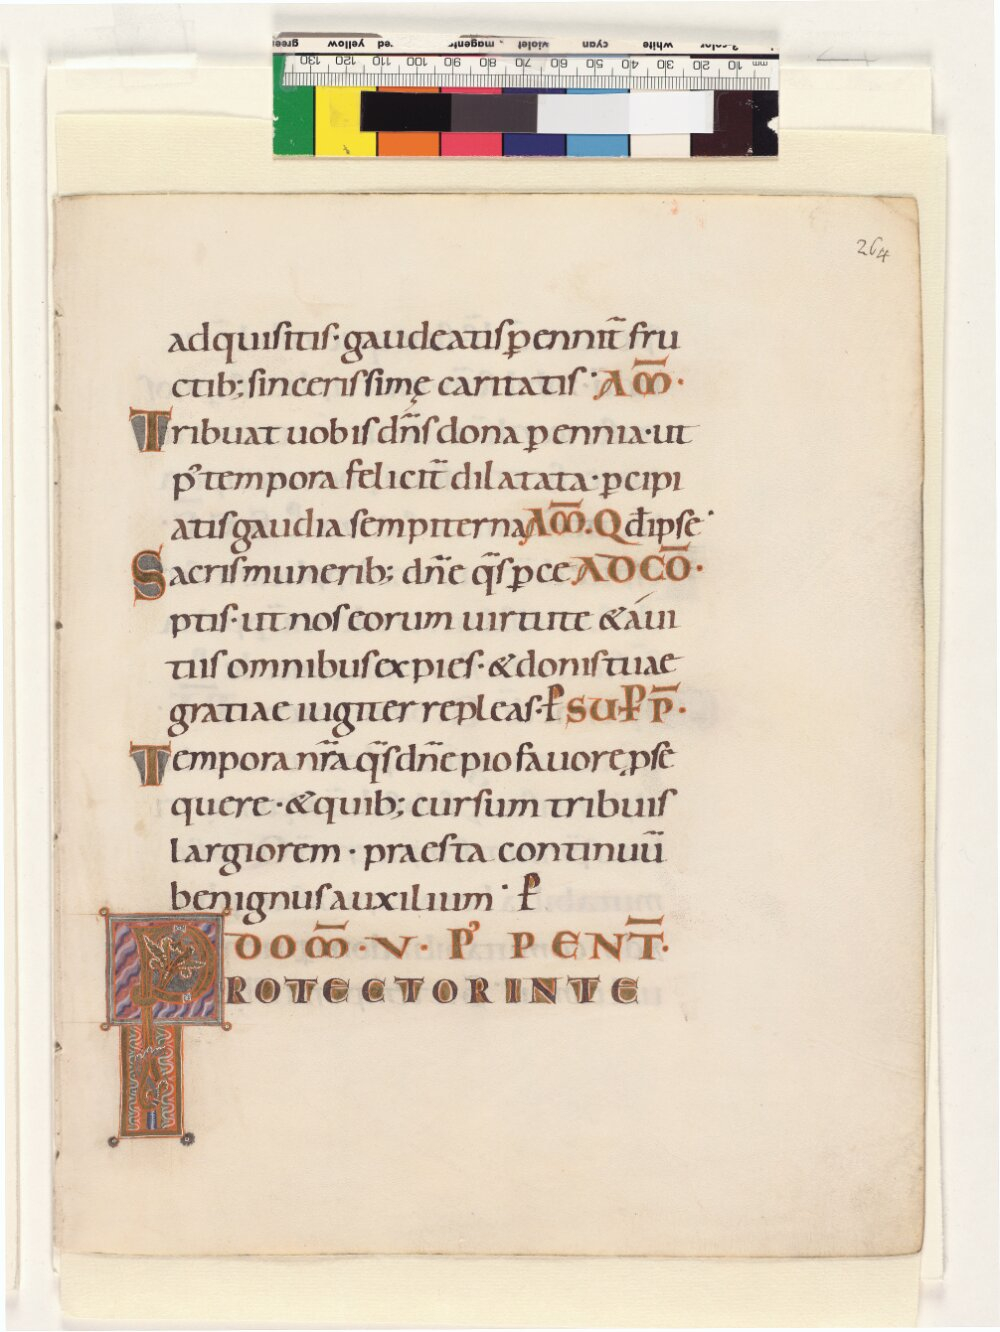 green yellow red magenta violet cyan white 3-color
130 120 110 100 90 80 70 60 50 40 30 20 10 mm
264
adquisitis· gaudeatis ꝑennit̄ fru
ctib; sincerissimę caritatis· AM̄·
Tribuat uobis dn̄s dona ꝑennia· ut
pꝰ tempora felicit̄ dilatata· ꝑcipi
atis gaudia sempiterna AM̄. Q đ ipse·
Sacris munerib; dn̄e q̄s ꝑce AD CŌ·
ptis· ut nos eorum uirtute & á uí
tiis omnibus expies· & donis tuae
gratiae iugiter repleas· ꝑ SUP P̄·
Tempora nr̄a q̄s dn̄e pio fauore ꝓse
quere· & quib; cursum tribuis
largiorem· praesta continuū
benignus auxilium· ꝑ
DOM̄· V· Pꝰ PENT̄·
PROTECTOR IN TE